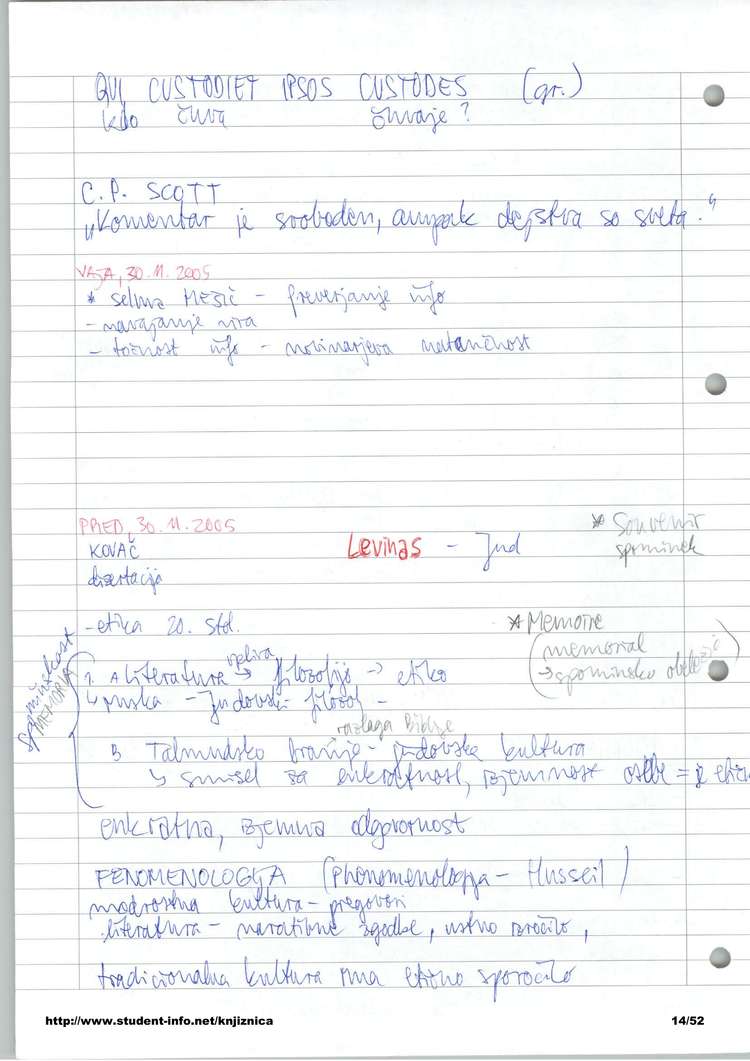 QUI CUSTODIET IPSOS CUSTODES (gr.)
kdo čuva čuvaje?
C.P. SCOTT
„Komentar je svoboden, ampak dejstva so sveta."
VAJA, 30.11.2005
* Selma MEŠIČ - preverjanje info
- navajanje vira
- točnost info - novinarjeva natančnost
PRED, 30.11.2005
KOVAČ
disertacija
Levinas - Jud
* Souvenir
spominek
- etika 20. stol.
* Memoire
(memorial
→ spominsko obeležje)
spominskost
MEMORIA
1. A literatura vpliva → filozofijo → etiko
↳ ruska - Judovski filozof -
razlaga Biblije
B Talmudsko branje - judovska kultura
↳ smisel za enkratnost, izjemnost osebe = je
enkratna, izjemna odgovornost
FENOMENOLOGIJA (Phönomenologija - Husserl)
modrostna kultura - pregovori
literatura - narativne zgodbe, ustno izročilo,
tradicionalna kultura ima etično sporočilo
http://www.student-info.net/knjiznica 14/52